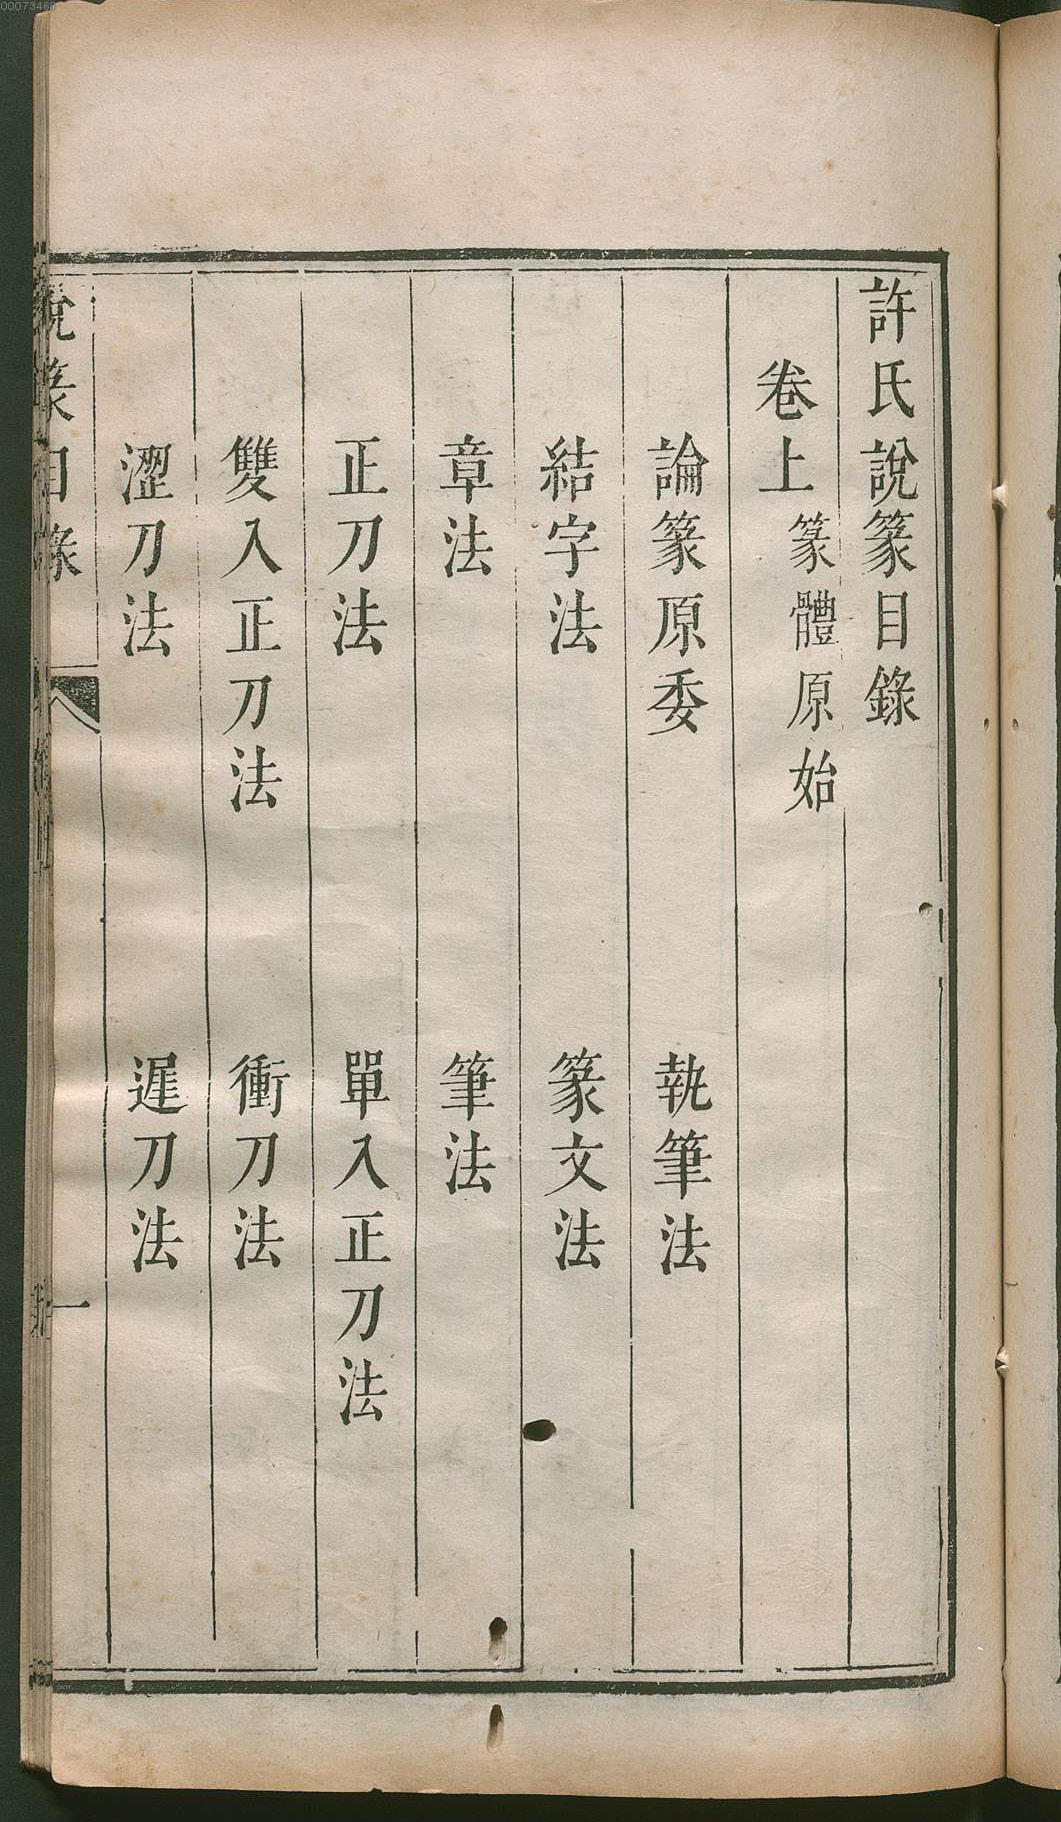 許氏說篆目錄
卷上 篆體原始
論篆原委 執筆法
結字法 篆文法
章法 筆法
正刀法 單入正刀法
雙入正刀法 衝刀法
澀刀法 遲刀法
說篆目錄 一
00073466